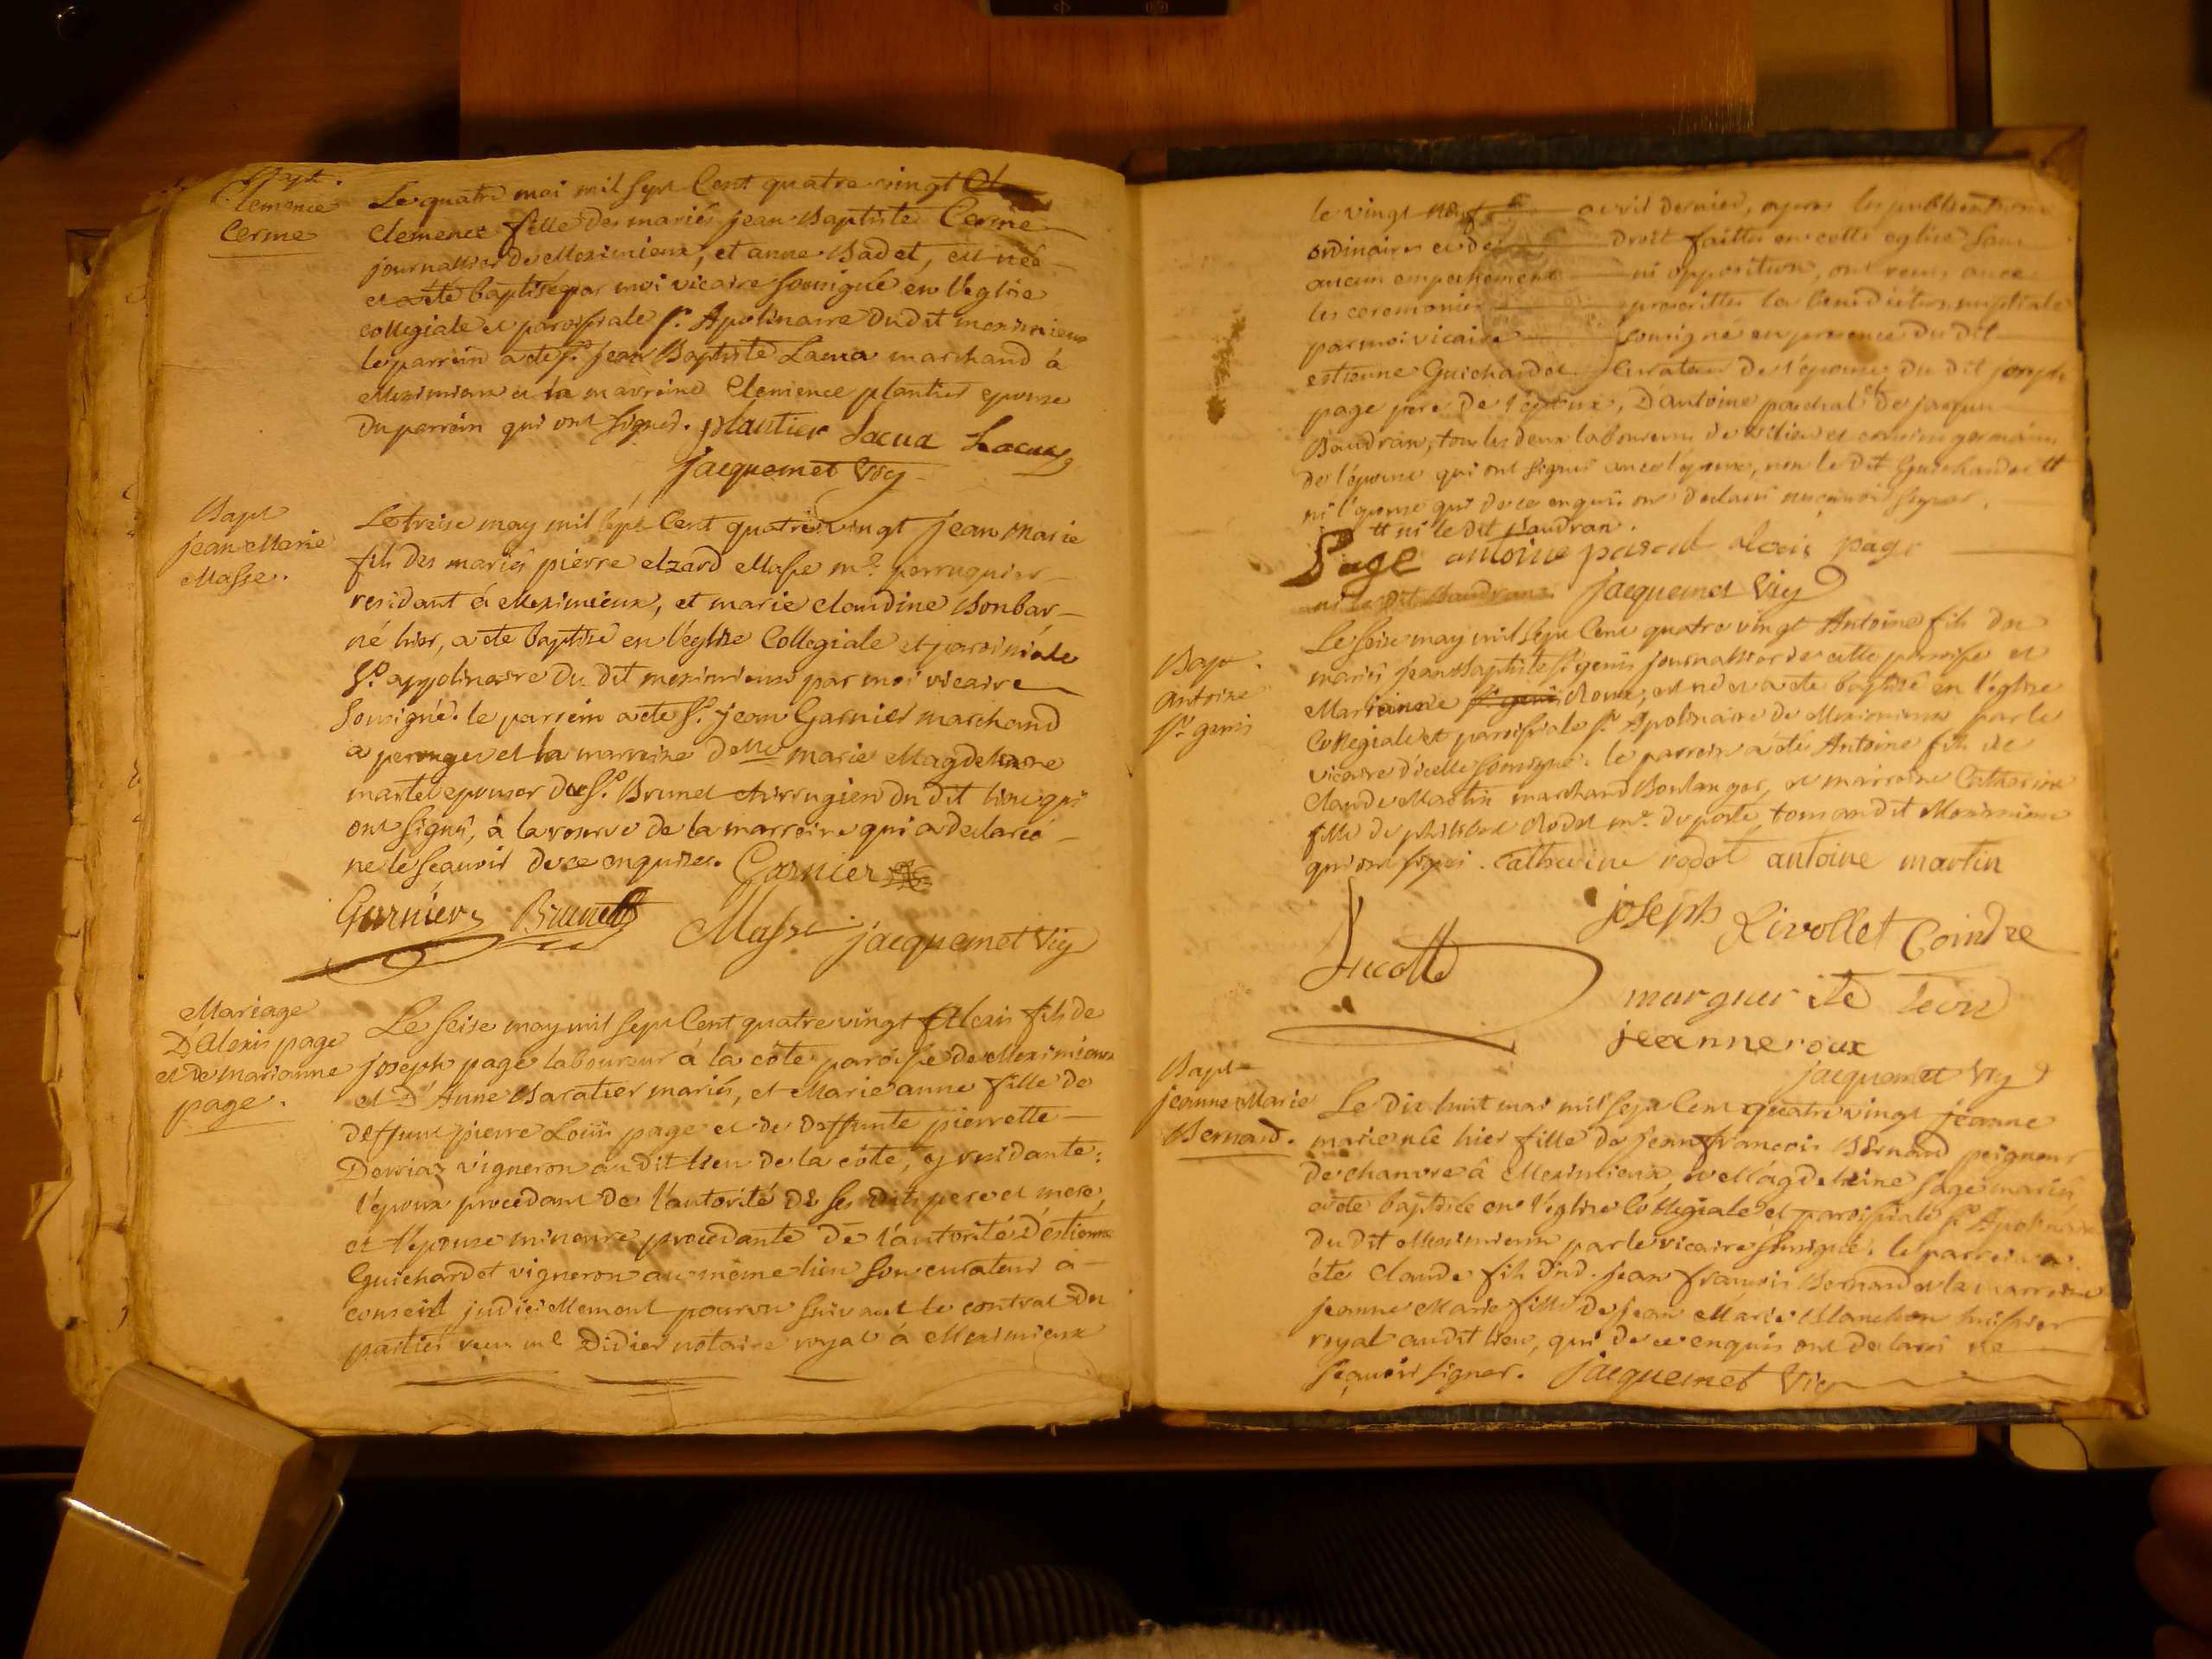 Bapt.
Clemence
Cerine
Le quatre mai mil sept Cent quatre vingt
Clemence fille des mariés jean Baptiste Cerine
journallier de Meximieux, et anne Badet, est née
et a été baptisé par moi vicaire sousigné en l'eglise
collegiale et paroissiale St. Apolinaire du dit meximieux
le parrein a été Sr. jean Baptiste Lacua marchand à
Meximieux et la marreine Clemence plantier epouse
du parrein qui ont signé. plantier Lacua Lacua
jacquemet vic
Bapt
jean Marie
Masse.
Le treise may mil sept Cent quatre vingt jean Marie
fils des mariés pierre elzard Masse me. perruquier
residant à Meximieux, et marie claudine Bonbar
né hier, a été baptisé en l'église Collegiale et paroissiale
St. appolinaire du dit meximieux par moi vicaire
sousigné. le parrein a été Sr. jean Garnier marchand
a perouges et la marreine delle marie Magdelaine
martel epouse du Sr. Brunet chirurgien du dit lieu qui
ont signé, à la reserve de la marreine qui a declaré
ne le sçavoir de ce enquise. Garnier
Garnier Brunet Masse jacquemet vic
Mariage
D'alexis page
et de marianne
page.
Le seise may mil sept Cent quatre vingt Alexis fils de
joseph page laboureur à la côte paroisse de Meximieux
et d'Anne Baratier mariés, et Marie anne fille de
deffunt pierre Louis page et de deffunte pierrette
Derriaz vigneron audit lieu de la côte, y residante:
l'époux procedant de l'autorité de ses dits pere et mere,
et l'epouse mineure procedante de l'autorité d'estienne
Guichardet vigneron au même lieu son curateur à
conseil judiciellement pourvu suivant le contrat des
parties reçu me Didier notaire royal à Meximieux
le vingt neuf avril dernier, apres les publications
ordinaires et de droit faittes en cette eglise sans
aucun empechement ni opposition, ont reçus avec
les ceremonies prescrittes la benediction nuptiale
par moi vicaire sousigné en presence du dit
estienne Guichardet Curateur de l'épouse, du dit joseph
page pere de l'époux, d'antoine paschal et de jacques
Baudran, tous les deux laboureurs de et cousins germains
de l'épouse qui ont signés avec l'époux, non le dit Guichardet tt
ni l'épouse qui de ce enquis ont declaré ne sçavoir signer.
tt ni le dit Baudran.
Page antoine pascal alexis page
ni le dit Baudran. jacquemet vic
Bapt.
Antoine
St. genis
Le seise may mil sept Cent quatre vingt Antoine fils des
mariés jean Baptiste St. genis journallier de cette paroisse et
Marianne Roux, est né et a été baptisé en l'église
Collegiale et paroissiale St. Apolinaire de Meximieux par le
vicaire d'icelle sousigné. le parrein a été Antoine fils de
Claude Martin marchand Boulanger, et marreine Catherine
fille de philibert Rodet me. de poste, tous audit Meximieux
qui ont signés. Catherine rodet antoine martin
joseph Rivollet Coindre
Lucotte
marguerite leon
jeanne roux
jacquemet vic
Bapt
jeanne Marie
Bernard.
Le dix huit mai mil sept Cent quatre vingt jeanne
marie née hier fille de jean francois Bernard peigneur
de chanvre à Meximieux, et Magdeleine Page mariés
a été baptisée en l'église Collegiale et paroissiale St. Apolinaire
du dit Meximieux par le vicaire sousigné. le parrein a
été Claude fils dud. jean francois Bernard et la marreine
jeanne Marie fille de jean Marie Blanchon huissier
royal audit lieu, qui de ce enquis ont declaré ne
sçavoir signer. jacquemet vic